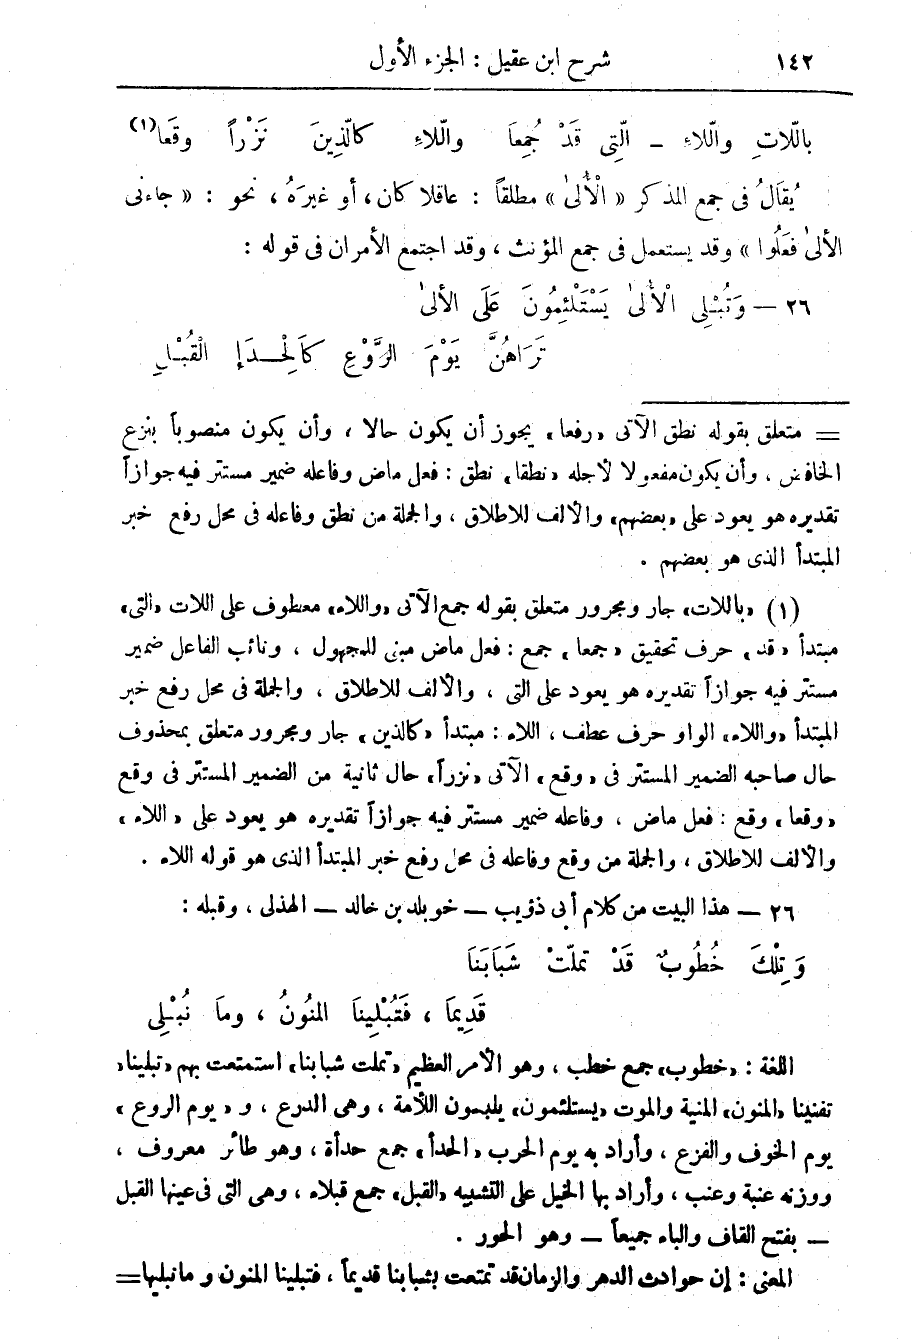 ١٤٢ شرح ابن عقيل : الجزء الأول
باللّاتِ واللّاءِ – الّتِى قَدْ جُمِعَا واللّاءِ كالّذِينَ نَزْراً وقَعَا (١)
يُقَالُ فى جمع المذكر « الْأُلىٰ » مطلقاً : عاقلا كان، أو غيرَهُ ، نحو : « جاءنى
الألىٰ فعَلُوا » وقد يستعمل فى جمع المؤنث ، وقد اجتمع الأمران فى قوله :
٢٦ — وَتُبْلِى الْأُلىٰ يَسْتَلْئِمُونَ عَلَى الألىٰ
تَرَاهُنَّ يَوْمَ الرَّوْعِ كَالْحِدَإِ الْقُبْلِ
= متعلق بقوله نطق الآتى «رفعا» يجوز أن يكون حالا ، وأن يكون منصوباً بنزع
الخافض ، وأن يكون مفعولا لأجله «نطقا» نطق : فعل ماض وفاعله ضمير مستتر فيه جوازاً
تقديره هو يعود على «بعضهم» والألف للاطلاق ، والجملة من نطق وفاعله فى محل رفع خبر
المبتدأ الذى هو بعضهم .
(١) «باللات» جار ومجرور متعلق بقوله جمع الآتى «واللاء» معطوف على اللات «التى»
مبتدأ «قد» حرف تحقيق «جمعا» جمع : فعل ماض مبنى للمجهول ، ونائب الفاعل ضمير
مستتر فيه جوازاً تقديره هو يعود على التى ، والألف للاطلاق ، والجملة فى محل رفع خبر
المبتدأ «واللاء» الواو حرف عطف ، اللاء : مبتدأ «كالذين» جار ومجرور متعلق بمحذوف
حال صاحبه الضمير المستتر فى «وقع» الآتى «نزراً» حال ثانية من الضمير المستتر فى وقع
«وقعا» وقع : فعل ماض ، وفاعله ضمير مستتر فيه جوازاً تقديره هو يعود على «اللاء»
والألف للاطلاق ، والجملة من وقع وفاعله فى محل رفع خبر المبتدأ الذى هو قوله اللاء .
٢٦ — هذا البيت من كلام أبى ذؤيب — خويلد بن خالد — الهذلى ، وقبله :
وَتِلْكَ خُطُوبٌ قَدْ تملّتْ شَبَابَنَا
قَدِيمَا ، فَتُبْلِينَا المنُونُ ، ومَا نُبْلِى
اللغة : «خطوب» جمع خطب ، وهو الأمر العظيم «تملت شبابنا» استمتعت بهم «تبلينا»
تفنينا «المنون» المنية والموت «يستلئمون» يلبسون اللأمة ، وهى الدرع ، و « يوم الروع »
يوم الخوف والفزع ، وأراد به يوم الحرب «الحدأ» جمع حدأة ، وهو طائر معروف ،
ووزنه عنبة وعنب ، وأراد بها الخيل على التشبيه «القبل» جمع قبلاء ، وهى التى فى عينها القبل
— بفتح القاف والباء جميعاً — وهو الحور .
المعنى : إن حوادث الدهر والزمان قد تمتعت بشبابنا قديماً ، فتبلينا المنون و مانبليها =